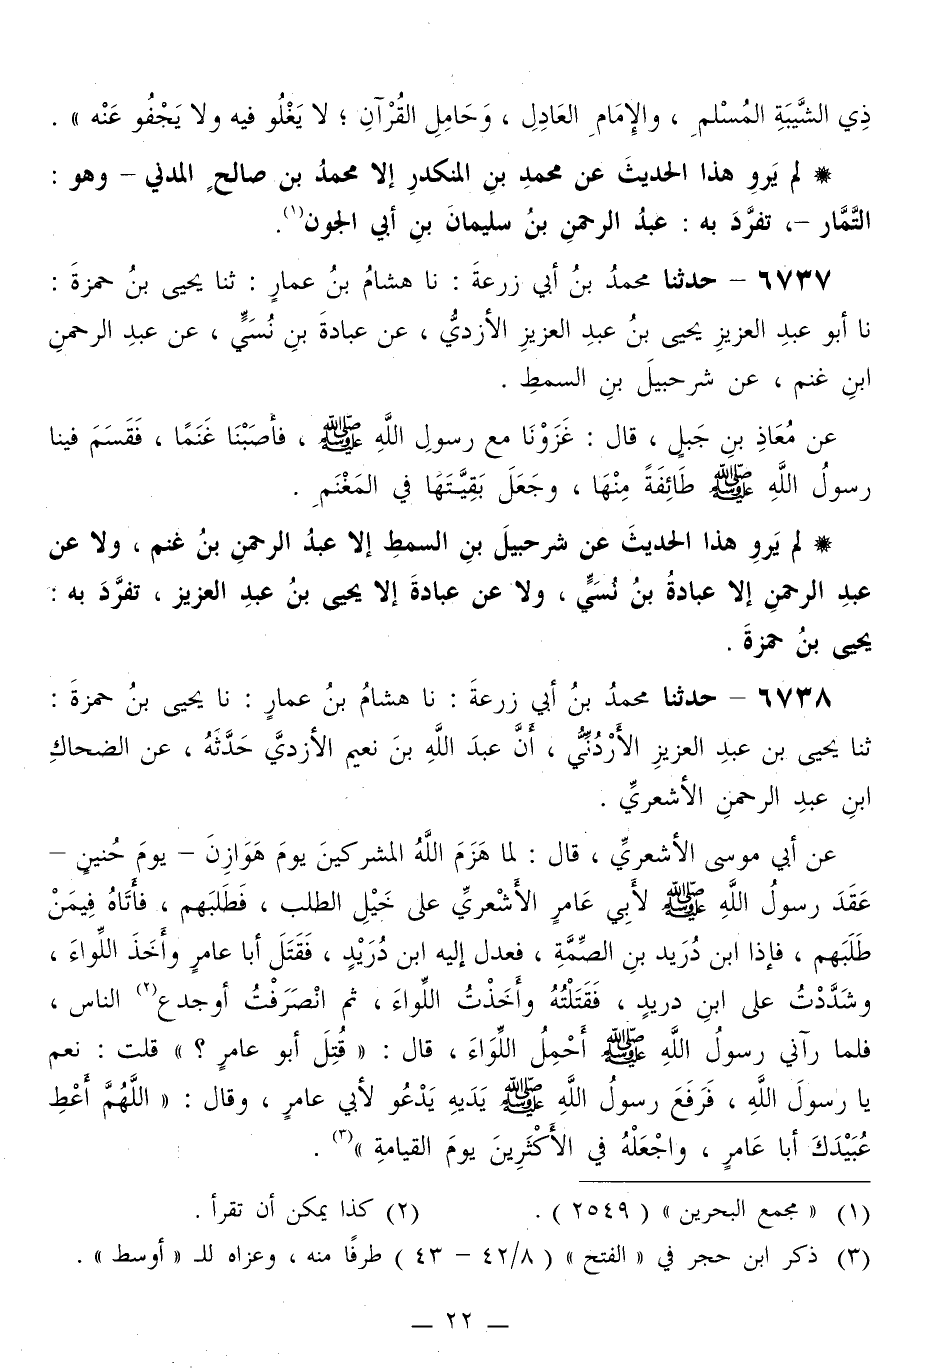 ذِي الشَّيْبَةِ المُسْلمِ ، والإِمَامِ العَادِلِ ، وَحَامِلِ القُرْآنِ ؛ لا يَغْلُو فيه ولا يَجْفُو عَنْه » .
* لم يَروِ هذا الحديثَ عن محمدِ بنِ المنكدرِ إلا محمدُ بن صالحٍ المدني – وهو :
التَّمَّار –، تفرَّدَ به : عبدُ الرحمنِ بنُ سليمانَ بنِ أبي الجون(١).
٦٧٣٧ – حدثنا محمدُ بنُ أبي زرعةَ : نا هشامُ بنُ عمارٍ : ثنا يحيى بنُ حمزةَ :
نا أبو عبدِ العزيزِ يحيى بنُ عبدِ العزيزِ الأزديُّ ، عن عبادةَ بنِ نُسَيٍّ ، عن عبدِ الرحمنِ
ابنِ غنم ، عن شرحبيلَ بنِ السمطِ .
عن مُعَاذِ بنِ جَبلٍ ، قال : غَزَوْنَا مع رسولِ اللَّهِ ﷺ ، فأصَبْنَا غَنَمًا ، فَقَسَمَ فينا
رسولُ اللَّهِ ﷺ طَائِفَةً مِنْهَا ، وجَعَلَ بَقِيَّتَهَا في المَغْنَمِ .
* لم يَروِ هذا الحديثَ عن شرحبيلَ بنِ السمطِ إلا عبدُ الرحمنِ بنُ غنم ، ولا عن
عبدِ الرحمنِ إلا عبادةُ بنُ نُسَيٍّ ، ولا عن عبادةَ إلا يحيى بنُ عبدِ العزيز ، تفرَّدَ به :
يحيى بنُ حمزةَ .
٦٧٣٨ – حدثنا محمدُ بنُ أبي زرعةَ : نا هشامُ بنُ عمارٍ : نا يحيى بنُ حمزةَ :
ثنا يحيى بن عبدِ العزيزِ الأَرْدُنِّيُّ ، أَنَّ عبدَ اللَّهِ بنَ نعيم الأزديَّ حَدَّثَهُ ، عن الضحاكِ
ابنِ عبدِ الرحمنِ الأشعريِّ .
عن أبي موسى الأشعريِّ ، قال : لما هَزَمَ اللَّهُ المشركينَ يومَ هَوَازِنَ – يومَ حُنينٍ –
عَقَدَ رسولُ اللَّهِ ﷺ لأَبِي عَامرٍ الأَشْعريِّ على خَيْلِ الطلب ، فَطَلبَهم ، فأَتَاهُ فِيمَنْ
طَلَبَهم ، فإذا ابن دُرَيد بنِ الصِّمَّةِ ، فعدل إليه ابن دُرَيْدٍ ، فَقَتَلَ أبا عامرٍ وأَخَذَ اللِّواءَ ،
وشَدَّدْتُ على ابنِ دريدٍ ، فَقَتَلْتُهُ وأَخَذْتُ اللِّواءَ ، ثم انْصَرَفْتُ أوجدع(٢) الناس ،
فلما رآني رسولُ اللَّهِ ﷺ أَحْمِلُ اللِّوَاءَ ، قال : « قُتِلَ أبو عامرٍ ؟ » قلت : نعم
يا رسولَ اللَّهِ ، فَرَفَعَ رسولُ اللَّهِ ﷺ يَدَيهِ يَدْعُو لأبي عامرٍ ، وقال : « اللَّهُمَّ أَعْطِ
عُبَيْدَكَ أبا عَامرٍ ، واجْعَلْهُ في الأَكْثَرِينَ يومَ القيامةِ »(٣) .
(١) « مجمع البحرين » ( ٢٥٤٩ ) . (٢) كذا يمكن أن تقرأ .
(٣) ذكر ابن حجر في « الفتح » ( ٤٢/٨ – ٤٣ ) طرفًا منه ، وعزاه للـ « أوسط » .
— ٢٢ —